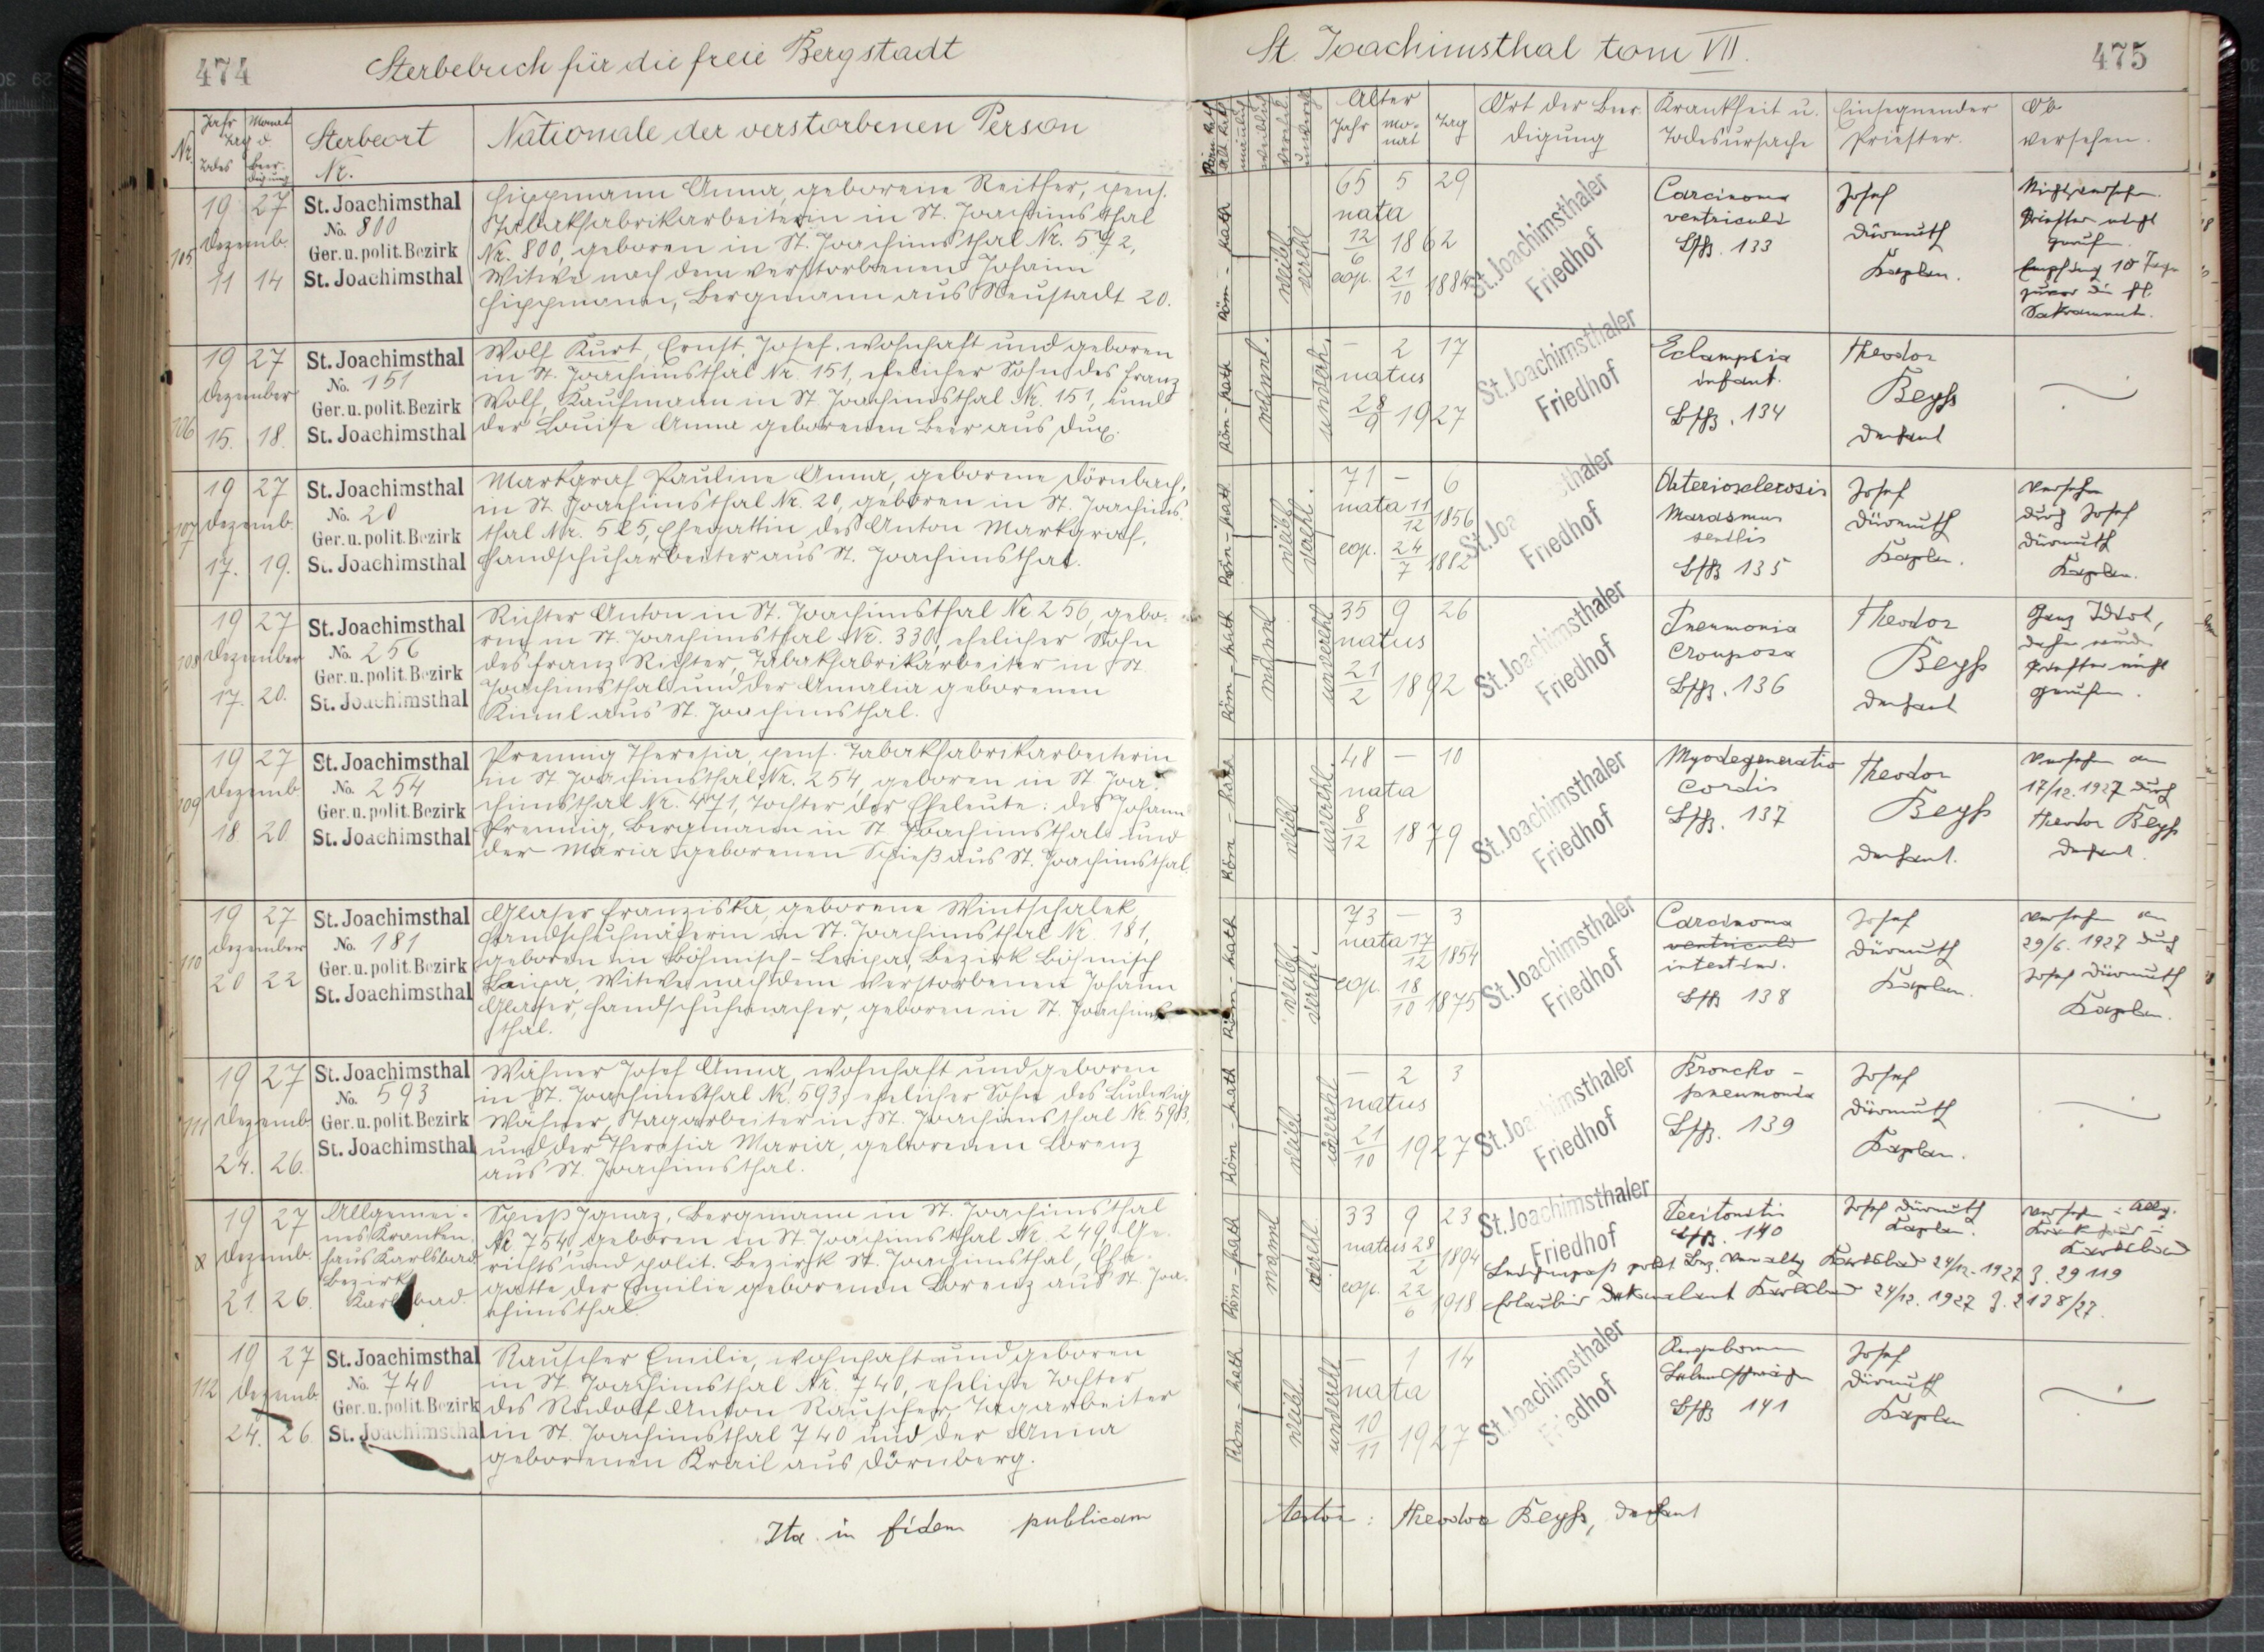 474
Sterbebuch für die freie Bergstadt
Nr.
Jahr Monat
Tag d.
Todes Beerdigung
Sterbeort
Nr.
Nationale der verstorbenen Person
105
19 27
Dezemb.
11 14
St. Joachimsthal
No. 800
Ger. u. polit. Bezirk
St. Joachimsthal
Hippmann Anna, geborene Reither, pens.
Tabakfabrikarbeiterin in St. Joachimsthal
Nr. 800, geboren in St. Joachimsthal Nr. 572,
Witwe nach dem verstorbenen Johann
Hippmann, Bergmann aus Neustadt 20.
106
19 27
Dezember
15. 18.
St. Joachimsthal
No. 151
Ger. u. polit. Bezirk
St. Joachimsthal
Wolf Kurt, Ernst, Josef, wohnhaft und geboren
in St. Joachimsthal Nr. 151, ehelicher Sohn des Franz
Wolf, Kaufmann in St. Joachimsthal Nr. 151, und
der Louise Anna geborenen Beer aus Dux.
107
19 27
Dezemb.
17. 19.
St. Joachimsthal
No. 20
Ger. u. polit. Bezirk
St. Joachimsthal
Markgraf Pauline Anna, geborene Dörnbach,
in St. Joachimsthal Nr. 20, geboren in St. Joachims-
thal Nr. 525, Ehegattin des Anton Markgraf,
Handschuharbeiter aus St. Joachimsthal.
108
19 27
Dezember
17. 20.
St. Joachimsthal
No. 256
Ger. u. polit. Bezirk
St. Joachimsthal
Richter Anton in St. Joachimsthal Nr 256, gebo-
ren in St. Joachimsthal Nr. 330, ehelicher Sohn
des Franz Richter, Tabakfabrikarbeiter in St.
Joachimsthal und der Amalia geborenen
Kimml aus St. Joachimsthal.
109
19 27
Dezemb
18 20
St. Joachimsthal
No. 254
Ger. u. polit. Bezirk
St. Joachimsthal
Prennig Theresia, pens. Tabakfabrikarbeiterin
in St Joachimsthal Nr. 254, geboren in St Joa-
chimsthal Nr. 471, Tochter der Eheleute: des Johann
Prennig, Bergmann in St Joachimsthal und
der Maria geborenen Schieß aus St. Joachimsthal.
110
19 27
Dezember
20 22
St. Joachimsthal
No. 181
Ger. u. polit. Bezirk
St. Joachimsthal
Glaser Franziska, geborene Wintschalek,
Handschuhnäherin in St. Joachimsthal Nr. 181,
geboren in Böhmisch-Leipa, Bezirk Böhmisch
Leipa, Witwe nach dem verstorbenen Johann
Glaser, Handschuhmacher, geboren in St. Joachims-
thal.
111
19 27
Dezemb
24. 26.
St. Joachimsthal
No. 593
Ger. u. polit. Bezirk
St. Joachimsthal
Wähner Josef Anna, wohnhaft und geboren
in St. Joachimsthal Nr. 593, ehelicher Sohn des Ludwig
Wähner, Tagarbeiter in St. Joachimsthal Nr. 593,
und der Theresia Maria, geborenen Lorenz
aus St. Joachimsthal.
19 27
Dezemb.
21. 26.
Allgemei-
nes Kranken-
haus Karlsbad
Bezirk
Karlsbad.
Spieß Ignaz, Bergmann in St. Joachimsthal
Nr. 754, geboren in St. Joachimsthal Nr. 249, Ge-
richts und polit. Bezirk St. Joachimsthal, Ehe-
gatte der Emilie geborenen Lorenz aus St. Joa-
chimsthal.
112
19 27
Dezemb.
24. 26.
St. Joachimsthal
No. 740
Ger. u. polit. Bezirk
St. Joachimsthal
Rauscher Emilie, wohnhaft und geboren
in St. Joachimsthal Nr. 740, eheliche Tochter
des Rudolf Anton Rauscher, Tagarbeiter
in St. Joachimsthal 740 und der Anna
geborenen Krail aus Dörnberg.
Ita in fidem publicam
St. Joachimsthal tom VII.
475
männlich
weiblich
verehel.
Alter
Jahr Monat Tag
Ort der Beer-
digung
Krankheit u.
Todesursache
Einsegnender
Priester.
Ob
versehen.
Röm-kath
weibl
verehl
65 5 29
nata
12/6 1862
cop. 21/10 1884
St. Joachimsthaler
Friedhof
Carcinoma
ventriculi
133
Josef
Dürmuth
Kaplan.
Nicht versehen.
Priester nicht
gerufen.
Empfing 10 Tage
zuvor die hl.
Sakramente.
Röm-kath
männl.
unverh.
- 2 17
natus
28/9 1927
St. Joachimsthaler
Friedhof
Eclampsia
infant.
134
Theodor
Beyß
Dechant
Röm-kath
weibl
verehl.
71 - 6
nata 11/12 1856
cop. 24/7 1882
St. Joa thaler
Friedhof
Arteriosclerosis
Marasmus
senilis
135
Josef
Dürmuth
Kaplan.
Versehen
durch Josef
Dürmuth
Kaplan.
Röm-kath
männl
unverehl
35 9 26
natus
21/2 1892
St. Joachimsthaler
Friedhof
Pneumonia
Crouposa
136
Theodor
Beyß
Dechant
Ganz Idiot,
daher wurde
Priester nicht
gerufen.
Röm-kath
weibl
unverehl
48 - 10
nata
8/12 1879
St. Joachimsthaler
Friedhof
Myodegeneratio
Cordis
137
Theodor
Beyß
Dechant.
Versehen am
17/12. 1927 durch
Theodor Beyß
Dechant.
Röm-kath
weibl.
verehl.
73 - 3
nata 17/12 1854
cop. 18/10 1875
St. Joachimsthaler
Friedhof
Carcinoma
ventriculi
intestin.
138
Josef
Dürmuth
Kaplan.
Versehen am
29/6. 1927 durch
Josef Dürmuth
Kaplan.
Röm-kath
weibl
unverehl
- 2 3
natus
21/10 1927
St. Joachimsthaler
Friedhof
Broncho-
pneumonia
139
Josef
Dürmuth
Kaplan.
Röm-kath
männl
verehl.
33 9 23
natus 28/2 1894
cop. 22/6 1918
St. Joachimsthaler
Friedhof
Peritonitis
140
Josef Dürmuth
Kaplan.
Versehen i. Allg.
Krankenhaus in
Karlsbad
Leichenpaß polit. Bez. Verwaltg Karlsbad 24/12. 1927 Z. 29119
Erlaubnis Dekanalamt Karlsbad 24/12. 1927 Z. 2138/27.
Röm-kath
weibl.
unverehl
- 1 14
nata
10/11 1927
St. Joachimsthaler
Friedhof
Angeborene
Lebensschwäche
141
Josef
Dürmuth
Kaplan
Theodor Beyß, Dechant